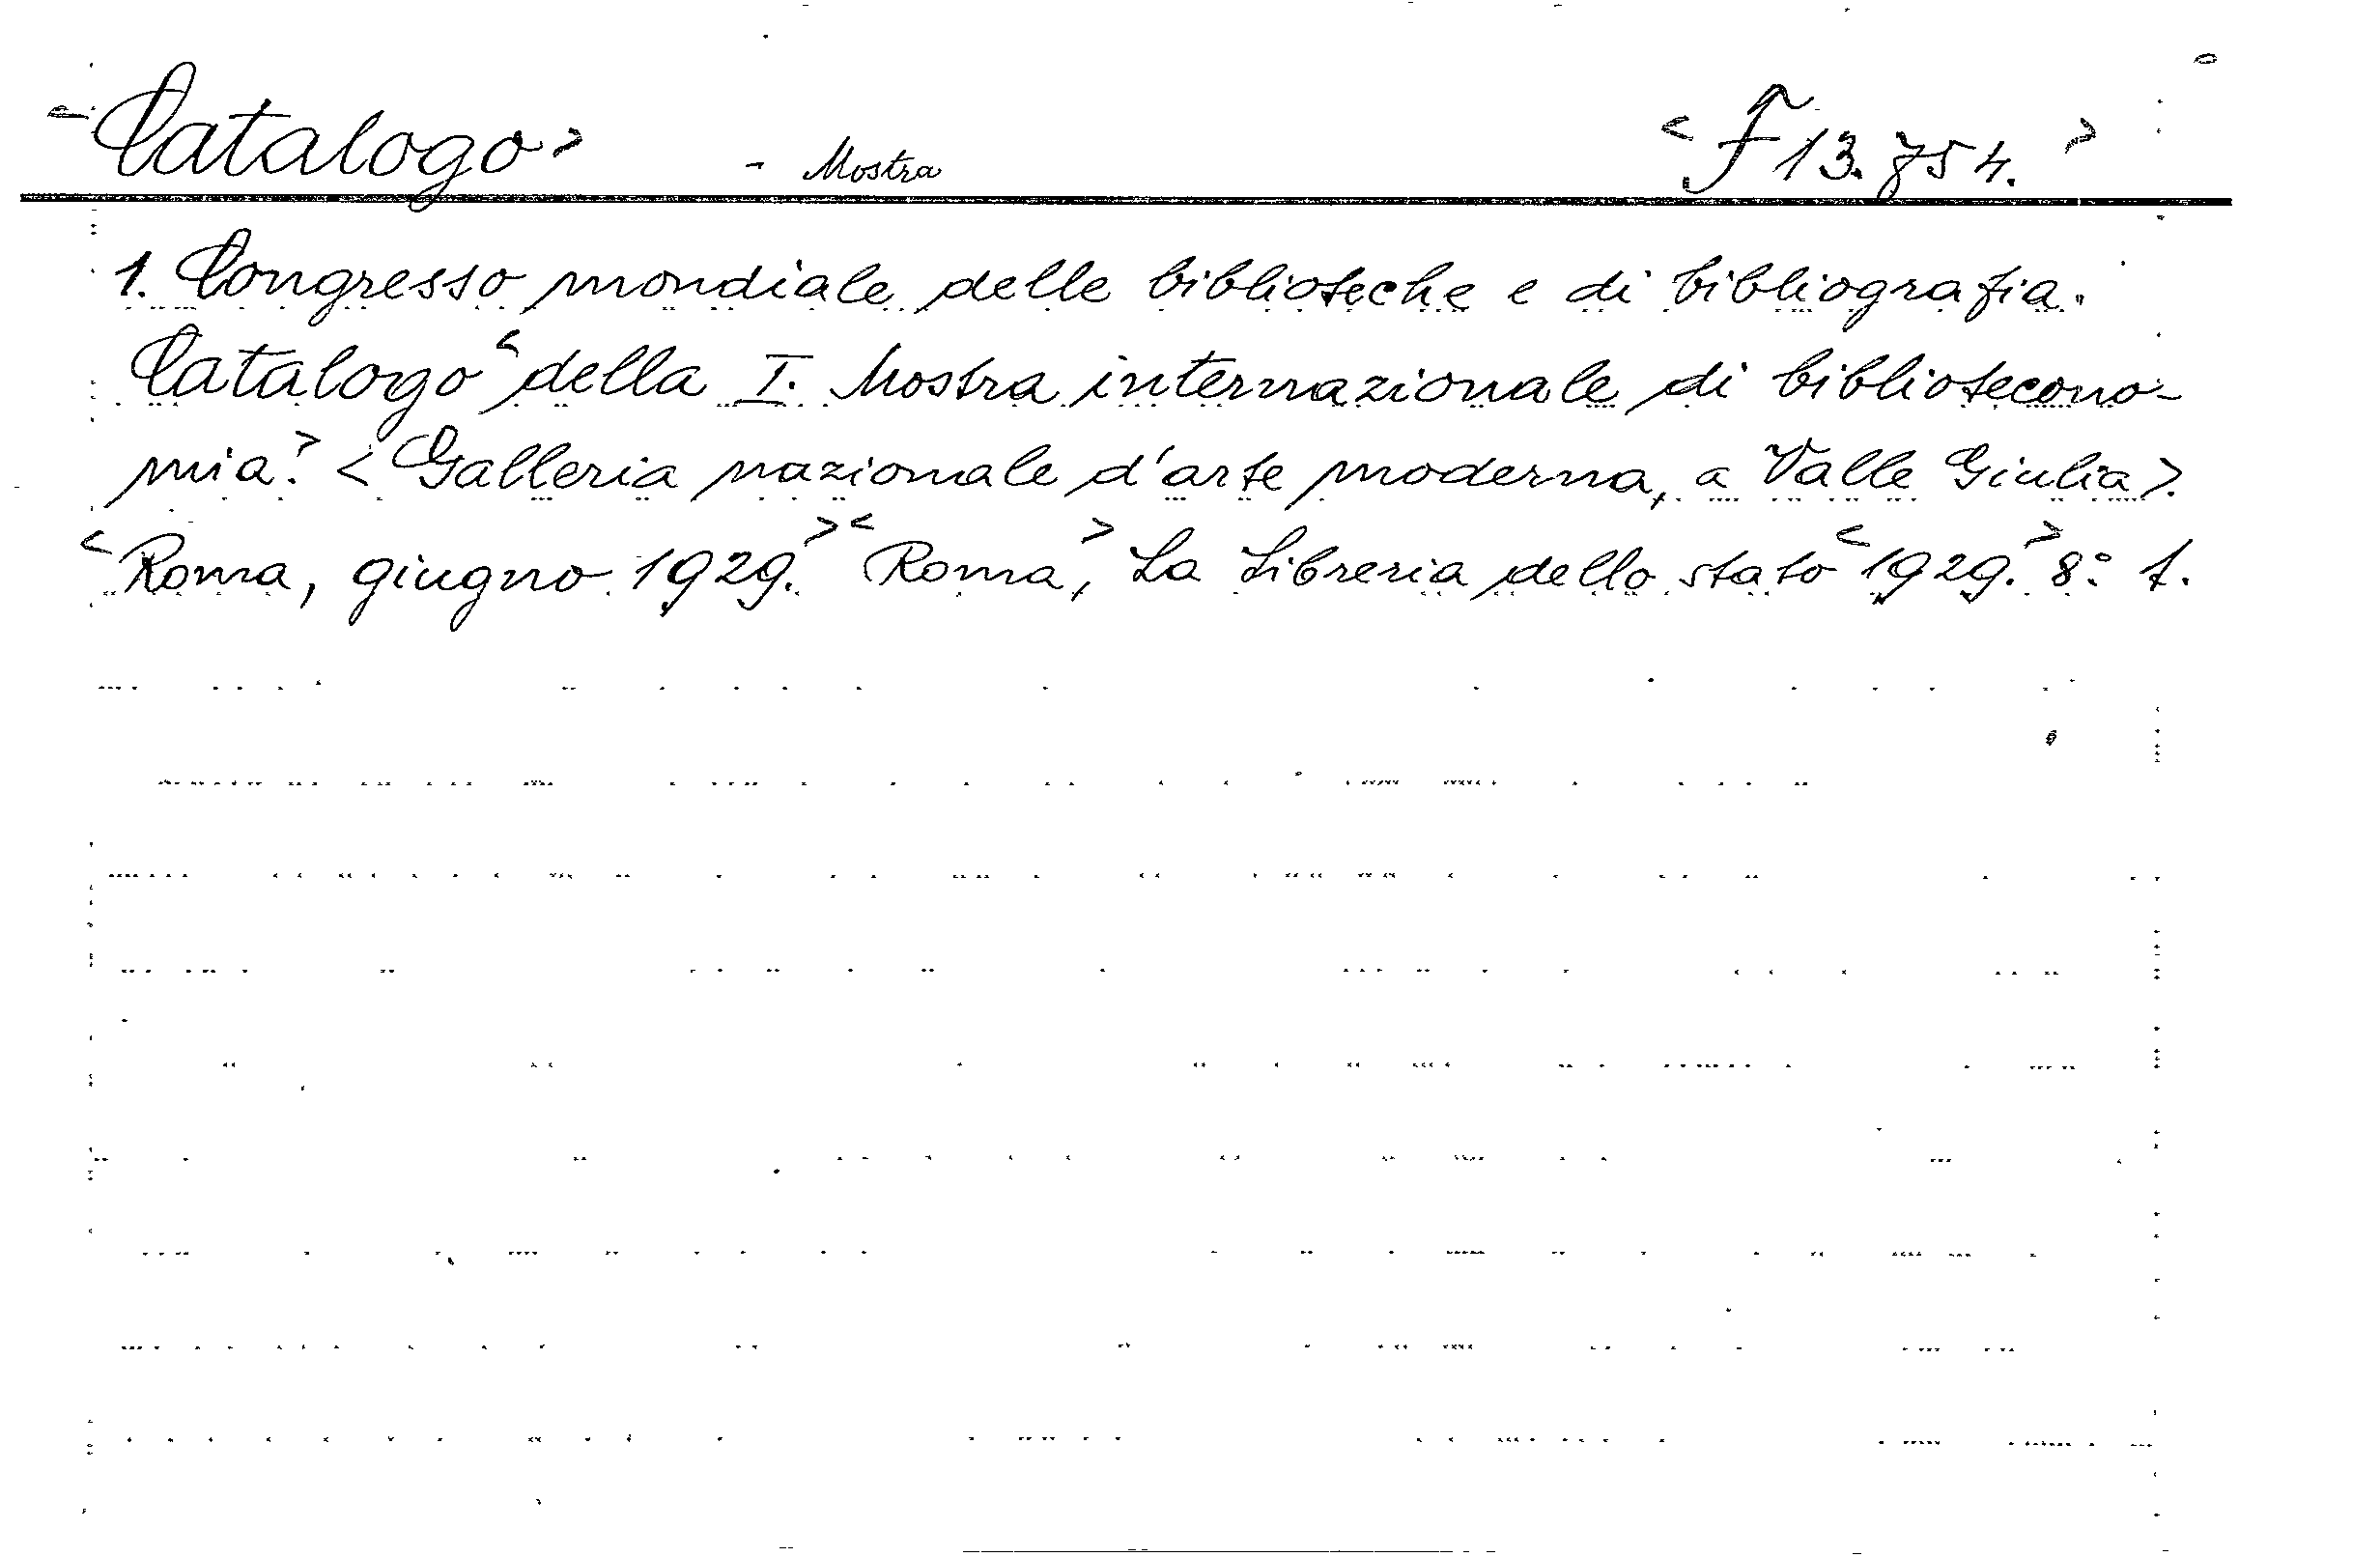 <Catalogo> - Mostra <F 13.754.>
1. Congresso mondiale delle biblioteche e di bibliografia.
Catalogo <della I. Mostra internazionale di bibliotecono-
mia.> <Galleria nazionale d'arte moderna, a Valle Giulia>.
<Roma, giugno 1929.> <Roma,> La Libreria dello stato <1929.> 8° t.